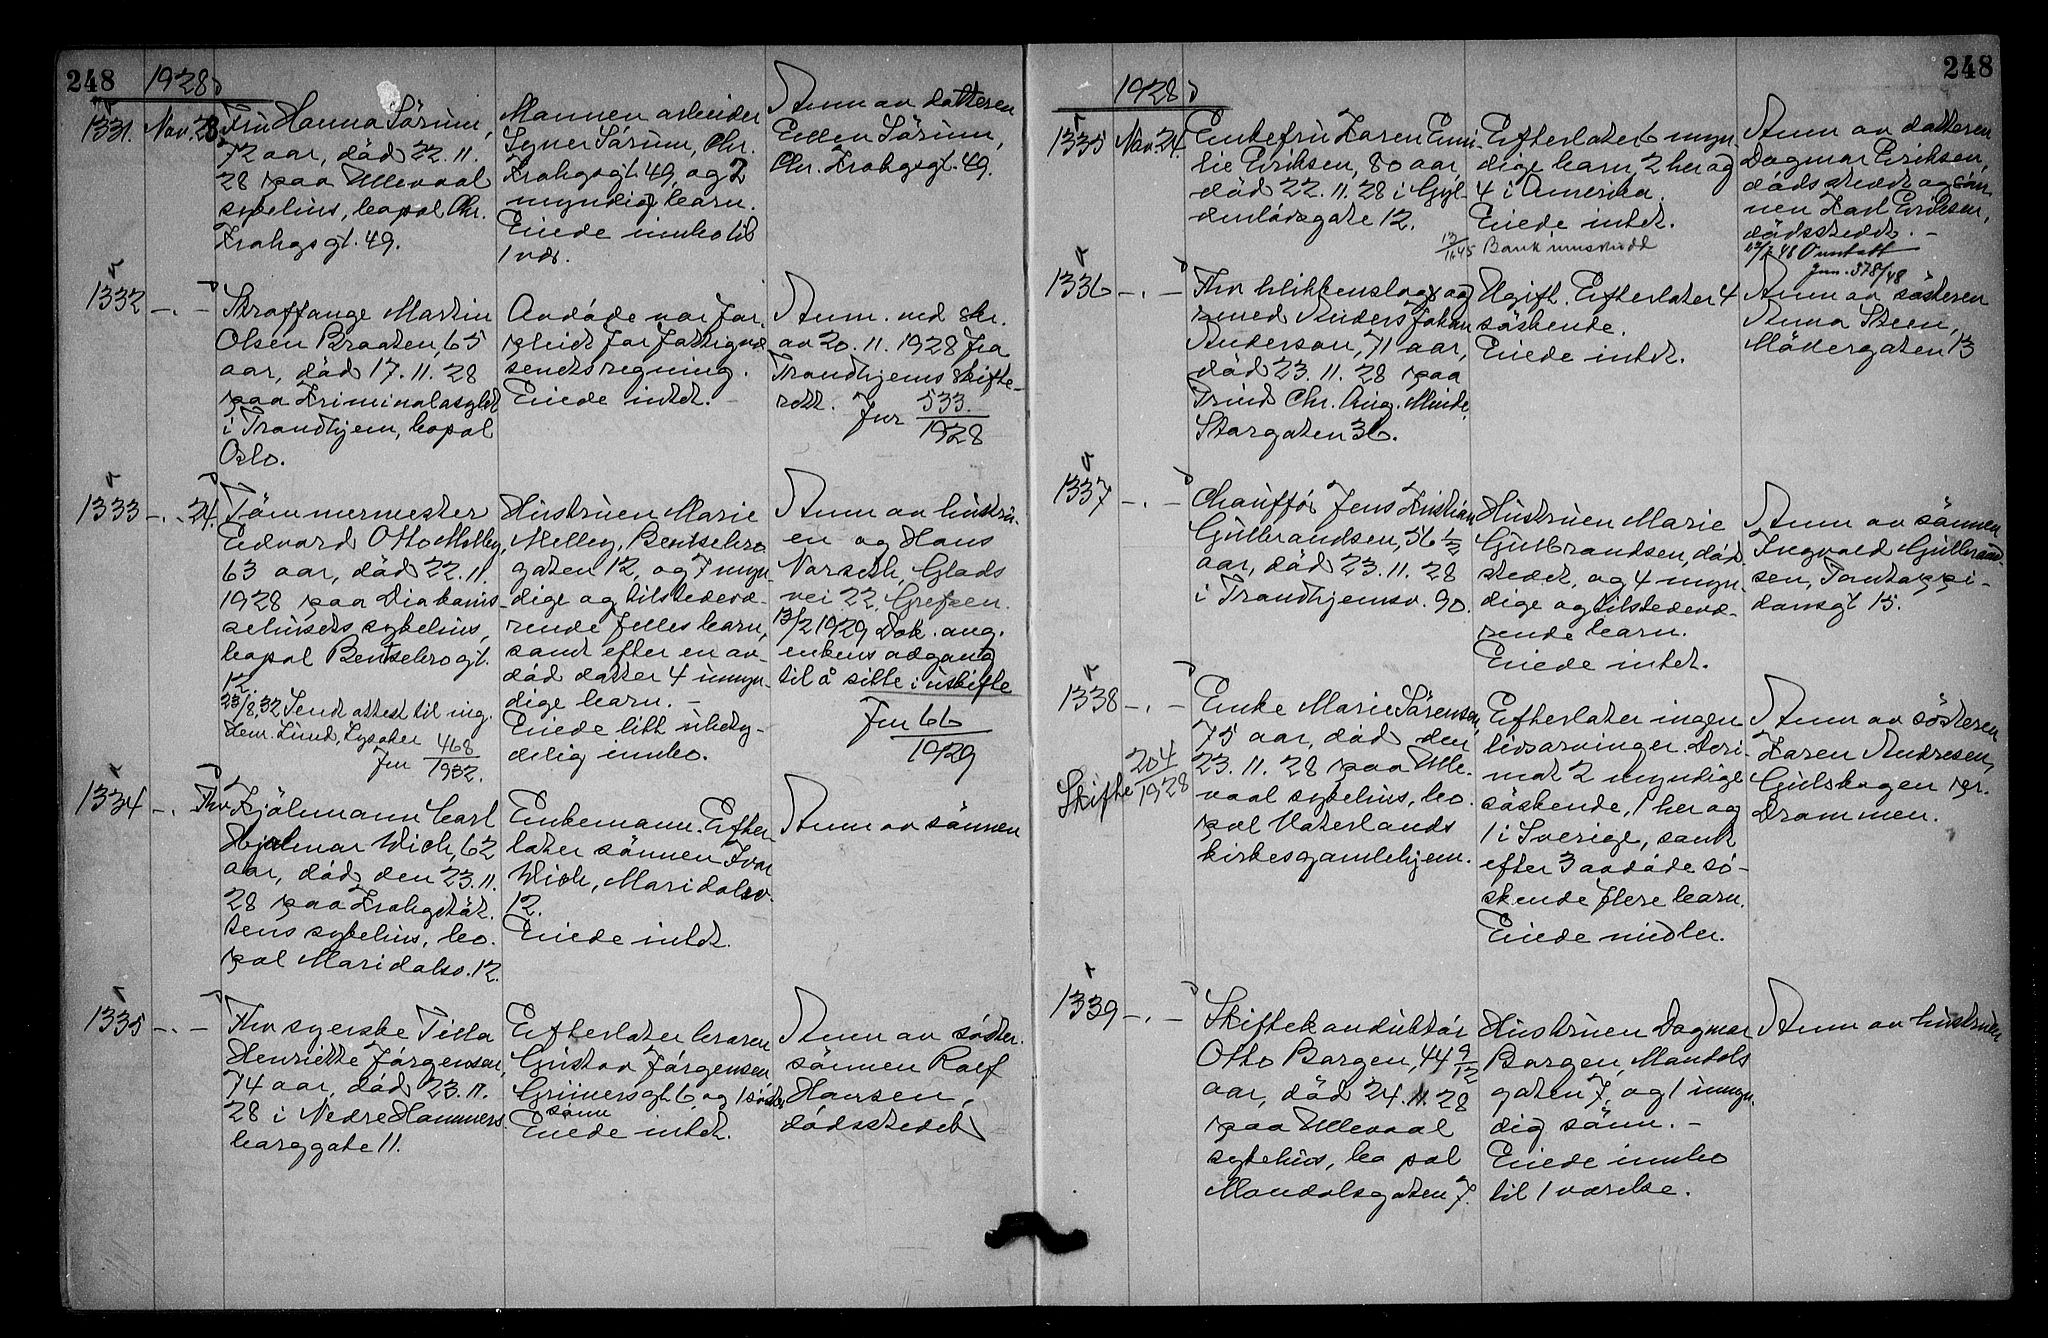 248
1928
1331. Nov. 23.
Fru Hanna Sörum,
72 aar, död 22.11.
28 paa Ullevaal
sykehus, bopæl Chr.
Krohgsgt. 49.
Mannen arbeider
Syver Sörum, Chr.
Krohgsgt. 49, og 2
myndige barn.
Eiede innbo til
1 vær.
Anm av datteren
Ellen Sörum,
Chr. Krohgsgt. 49.
1332 -.-
Straffange Martin
Olsen Braaten, 65
aar, död 17.11.28
paa Kriminalasylet
i Trondhjem, bopæl
Oslo.
Avdöde var for-
pleiet for fattigvæ
senets regning.
Eiede intet.
Anm. ved skr.
av 20.11.1928 fra
Trondhjems skifte-
rett. Jnr 533
1928
1333 -.- 24.
Tömmermester
Edvard Otto Melley,
63 aar, död 22.11.
1928 paa Diakonis-
sehusets sykehus,
bopæl Bentsebrogt.
12.
25/8.32 Sendt attest til ing.
Henr. Lund, Lysaker
Jnr 468
1932.
Hustruen Marie
Melley, Bentsebro
gaten 12, og 7 myn-
dige og tilstedevæ-
rende felles barn,
samt efter en av-
död datter 4 umyn-
dige barn. -
Eiede litt ubety-
delig innbo.
Anm av hustru-
en og Hans
Narseth, Glads
vei 22, Grefsen.
13/2 1929 Dok. ang.
enkens adgang
til å sitte i uskifte
Jnr 66
1929
1334 -.-
Fhv Kjölmann Carl
Hjalmar Wich, 62
aar, död den 23.11.
28 paa Krohgstöt.
tens sykehus, bo.
pæl Maridalsv. 12.
Enkemann. Efter
later sönnen Ivar
Wich, Maridalsv.
12.
Eiede intet.
Anm av sönnen
1335 -.-
Fhv syerske Tilla
Henriette Jörgensen,
74 aar, död 23.11.
28 i Nedre Hammers
borggate 11.
Efterlater broren
Gustav Jörgensen
Grünersgt 6, og 1 söster
sönn
Eiede intet.
Anm av söster.
sönnen Rolf
Hansen,
dödsstedet
248
1928
1335 Nov. 24.
Enkefru Karen Emi-
lie Eriksen, 80 aar,
död 22.11.28 i Gyl-
denlövsgate 12.
Efterlater 6 myn-
dige barn, 2 her og
4 i Amerika.
Eiede intet.
Bankinnskudd
Anm av datteren
Dagmar Eriksen,
dödsstedet og sön
nen Karl Eriksen,
dödsstedet. -
jnr. 378/48
1336 -.-
Fhv blikkenslager og
Anders Johan
Anderson, 71 aar,
död 23.11.28 paa
Prinds Chr. Aug. Minde,
Storgaten 36.
Ugift. Efterlater 4
söskende.
Eiede intet.
Anm av sösteren
Anna Steen,
Möllergaten 13
1337 -.-
Chaufför Jens Kristian
Gulbrandsen, 56 1/2
aar, död 23.11.28
i Trondhjemsv. 90.
Hustruen Marie
Gulbrandsen, död.
stedet, og 4 myn-
dige og tilstedevæ-
rende barn.
Eiede intet.
Anm av sönnen
Ingvald Gulbrand-
sen, Tontoppi-
dansgt 15.
1338 -.-
Skifte 204
1928
Enke Marie Sörensen,
75 aar, död den
23.11.28 paa Ulle-
vaal sykehus, bo.
pæl Vaterlands
kirkes gamlehjem.
Efterlater ingen
livsarvinger. Deri-
mot 2 myndige
söskende, 1 her og
1 i Sverige, samt
efter 3 avdöde sö-
skende flere barn.
Eiede midler.
Anm av sösteren
Karen Andresen,
Gulskogen pr.
Drammen.
1339 -.-
Skiftekonduktör
Otto Borgen, 44 9/12
aar, död 24.11.28
paa Ullevaal
sykehus, bo pæl
Mandalsgaten 7.
Hustruen Dagmar
Borgen, Mandals
gaten 7, og 1 umyn.
dig sönn. -
Eiede innbo
til 1 værelse.
Anm av hustruen